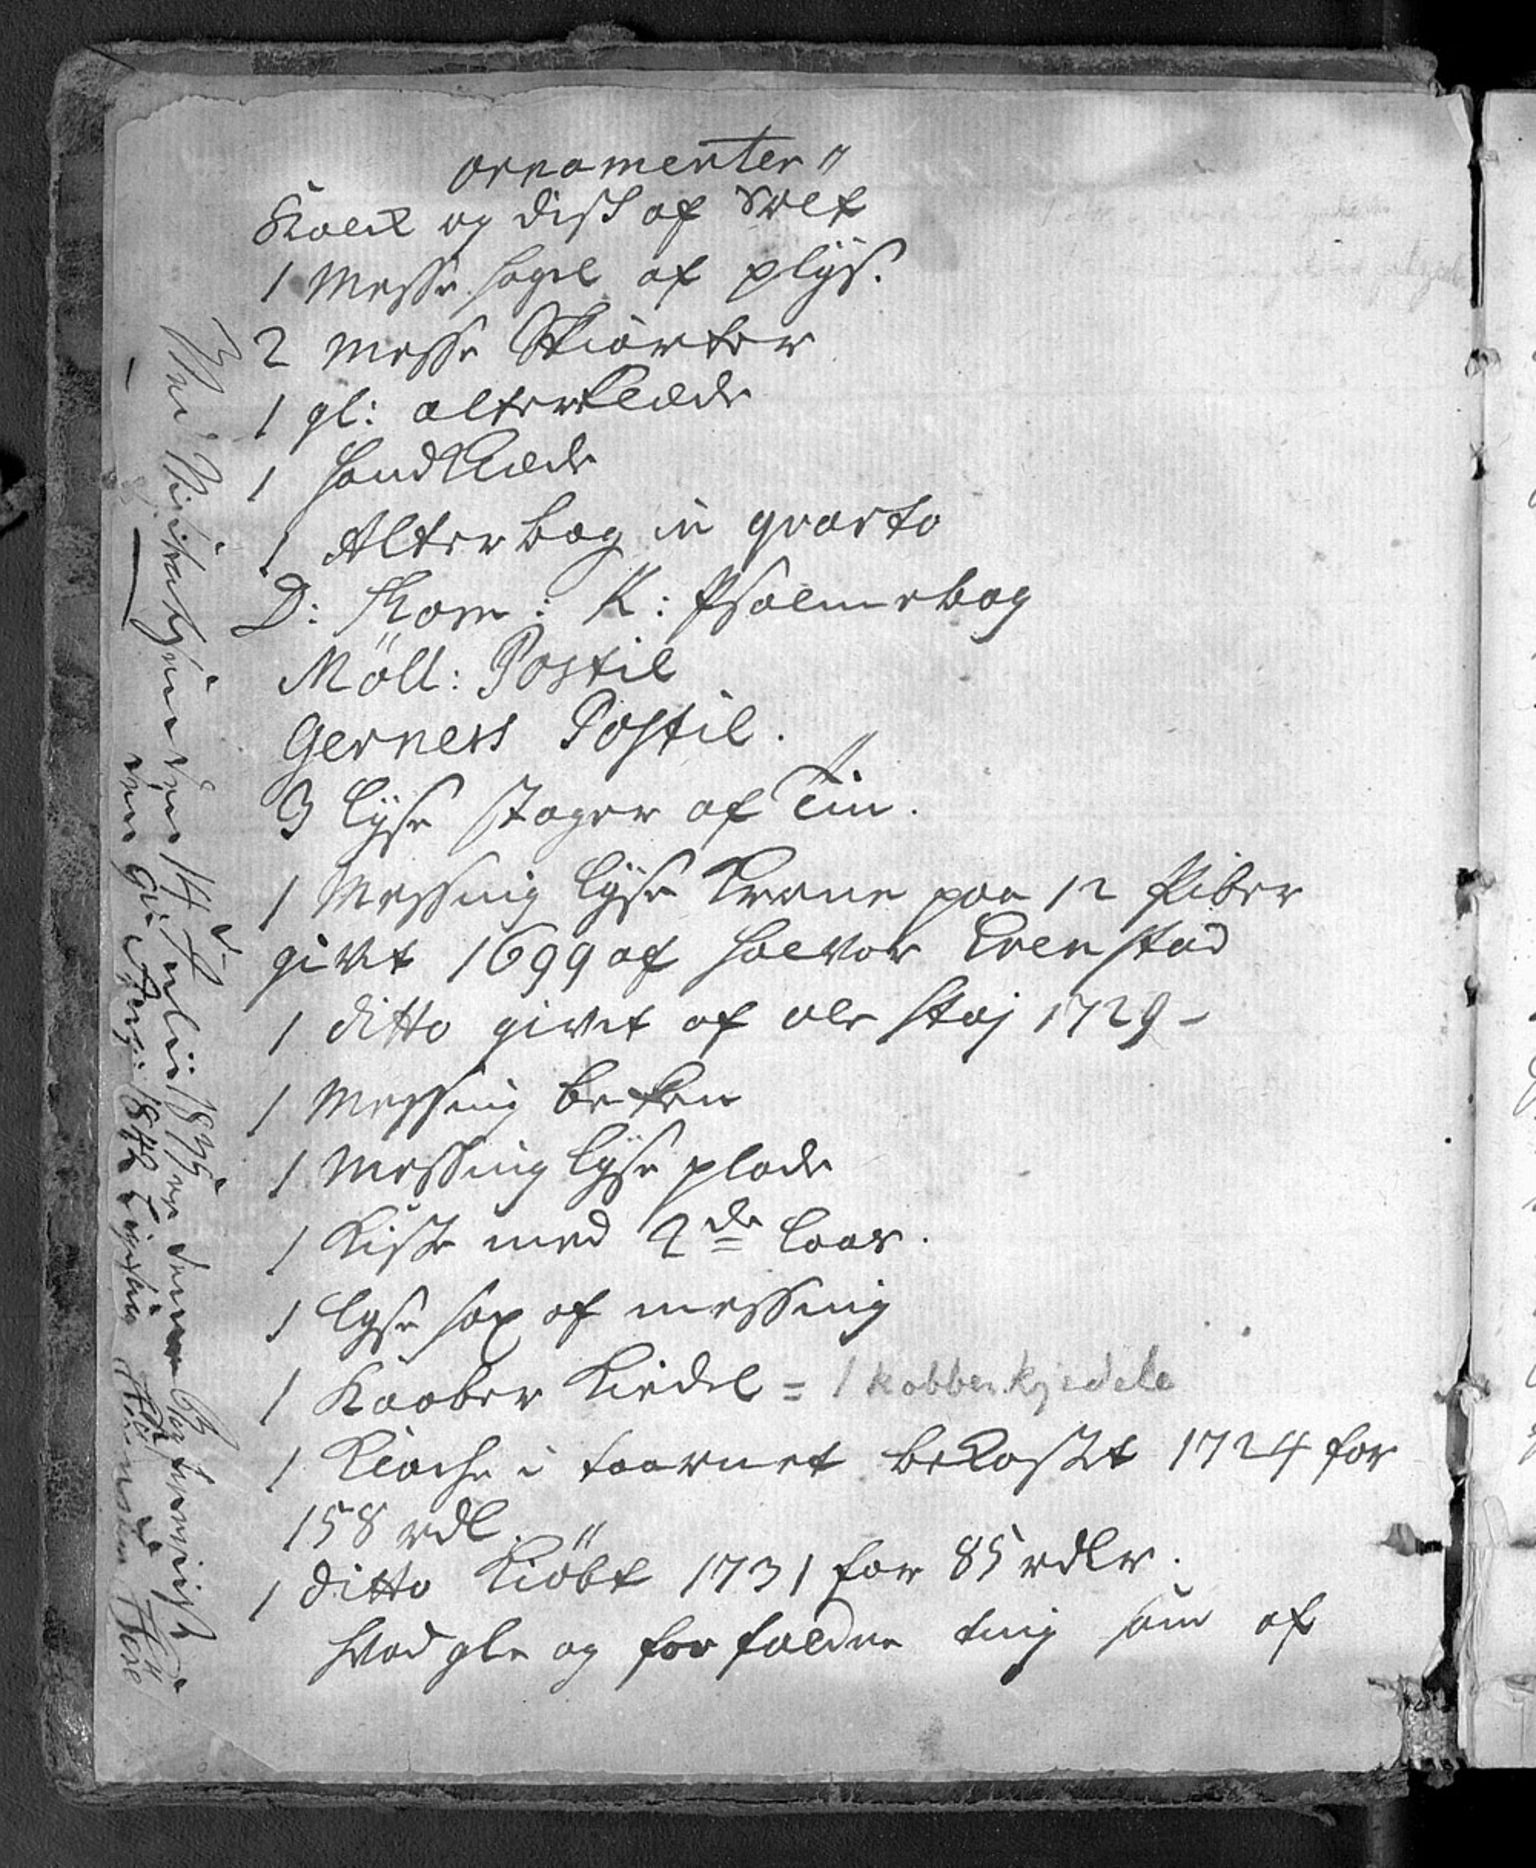 ornamenter
Kalck og Disk af Sølf
1 Messe hagel af plÿs.
2 Messe Skiorter
1 gl: alterklæde
1 Handklæde
1 Alterbog in qvarto
D: Kom: K: Psalmebog
Möll: Postil
Gerners Postil.
3 lÿse stager af Tin.
1 Messing lÿse Krone paa 12 Piber
givet 1699 af Halvor Evenstad
1 ditto givet af Ole Staj 1729 -
1 Messing bekken
1 Messing lÿse plade
1 Kiste med 2de laas.
1 lyse sax af messing
1 Kaaber Kiedel = 1 kobberkjedele
1 Klocke i taarnet bekostet 1724 for
158 rdl.
1 ditto Kiöbt 1731 for 85 rdlr.
Hvad gle og forfaldne ting som af
Ved Visitatsen den 14 Julii 1835 er denne
den 1842